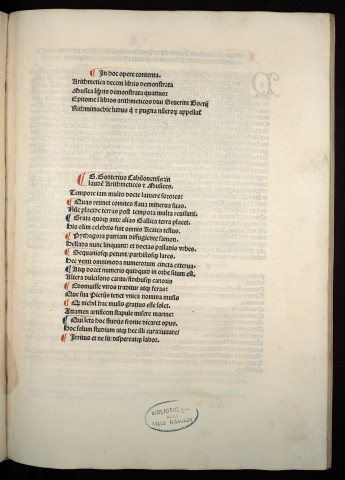 ¶ In hoc opere contenta.
Arithmetica decem libris demonstrata
Musica libris demonstrata quattuor
Epitome ī libros arithmeticos diui Seuerini Boetij
Rithmimachie ludus q̄ ⁊ pugna nūerorꝫ appellať
¶ G. Gonterius Cabilonensis in
laudē Arithmetices ⁊ Musices.
Tempore iam multo docte latuere sorores:
¶ Quas retinet comites flaua minerua suas.
Nūc placide terras post tempora multa reuisunt
¶ Grata quoqꝫ ante alias Gallica terra placet.
His olim celebris fuit omnis Acaica tellus.
¶ Pythagora patriam diffugiente samon.
Hellada nunc linquunt: et doctas palladis vrbes.
¶ Sequaniosqꝫ petunt: parhisiosqꝫ lares.
Hec venit omnimoda numerorum cincta caterua
¶ Atqꝫ docet numeris quicquid in orbe situm est.
Altera dulcisono cantu fidibusqꝫ canoris
¶ Domuisse viros traditur atqꝫ feras:
Que sua Pierijs tenet vnica nomina musis
¶ Et nichil hac musis gratius esse solet.
Attamen artificem stapule misere
¶ Qui leta hoc studijs fronte dicaret opus.
Hoc solum studium atqꝫ
¶ Irritus et ne sit dispereatqꝫ labor.
BIBLIOTHÈQUE
DE LA
VILLE D'ANGERS